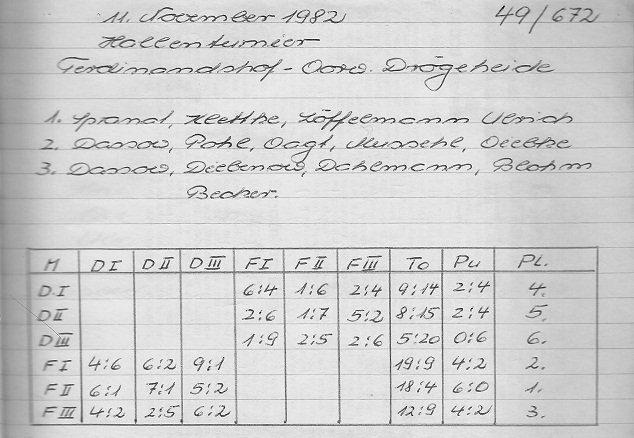 11. November 1982 49/672
Hallenturnier
Ferdinandshof - Drögeheide
1. Klettke, Löffelmann Ulrich
2. Dassow, Pohl, Vogt, Mussehl,
3. Dassow, Diebenow, Dahlmann, Blohm
Becker.
M DI DII DIII FI FII FIII To Pu PL.
D.I 6:4 1:6 2:4 9:14 2:4 4.
DII 2:6 1:7 5:2 8:15 2:4 5.
DIII 1:9 2:5 2:6 5:20 0:6 6.
FI 4:6 6:2 9:1 19:9 4:2 2.
FII 6:1 7:1 5:2 18:4 6:0 1.
FIII 4:2 2:5 6:2 12:9 4:2 3.